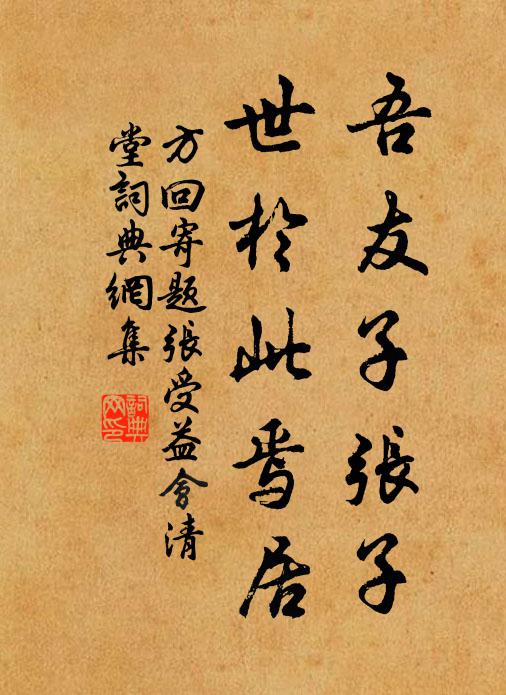 吾友子張子
世於此焉居
方回寄題張受益會清
堂詞典網集
詞典
网印